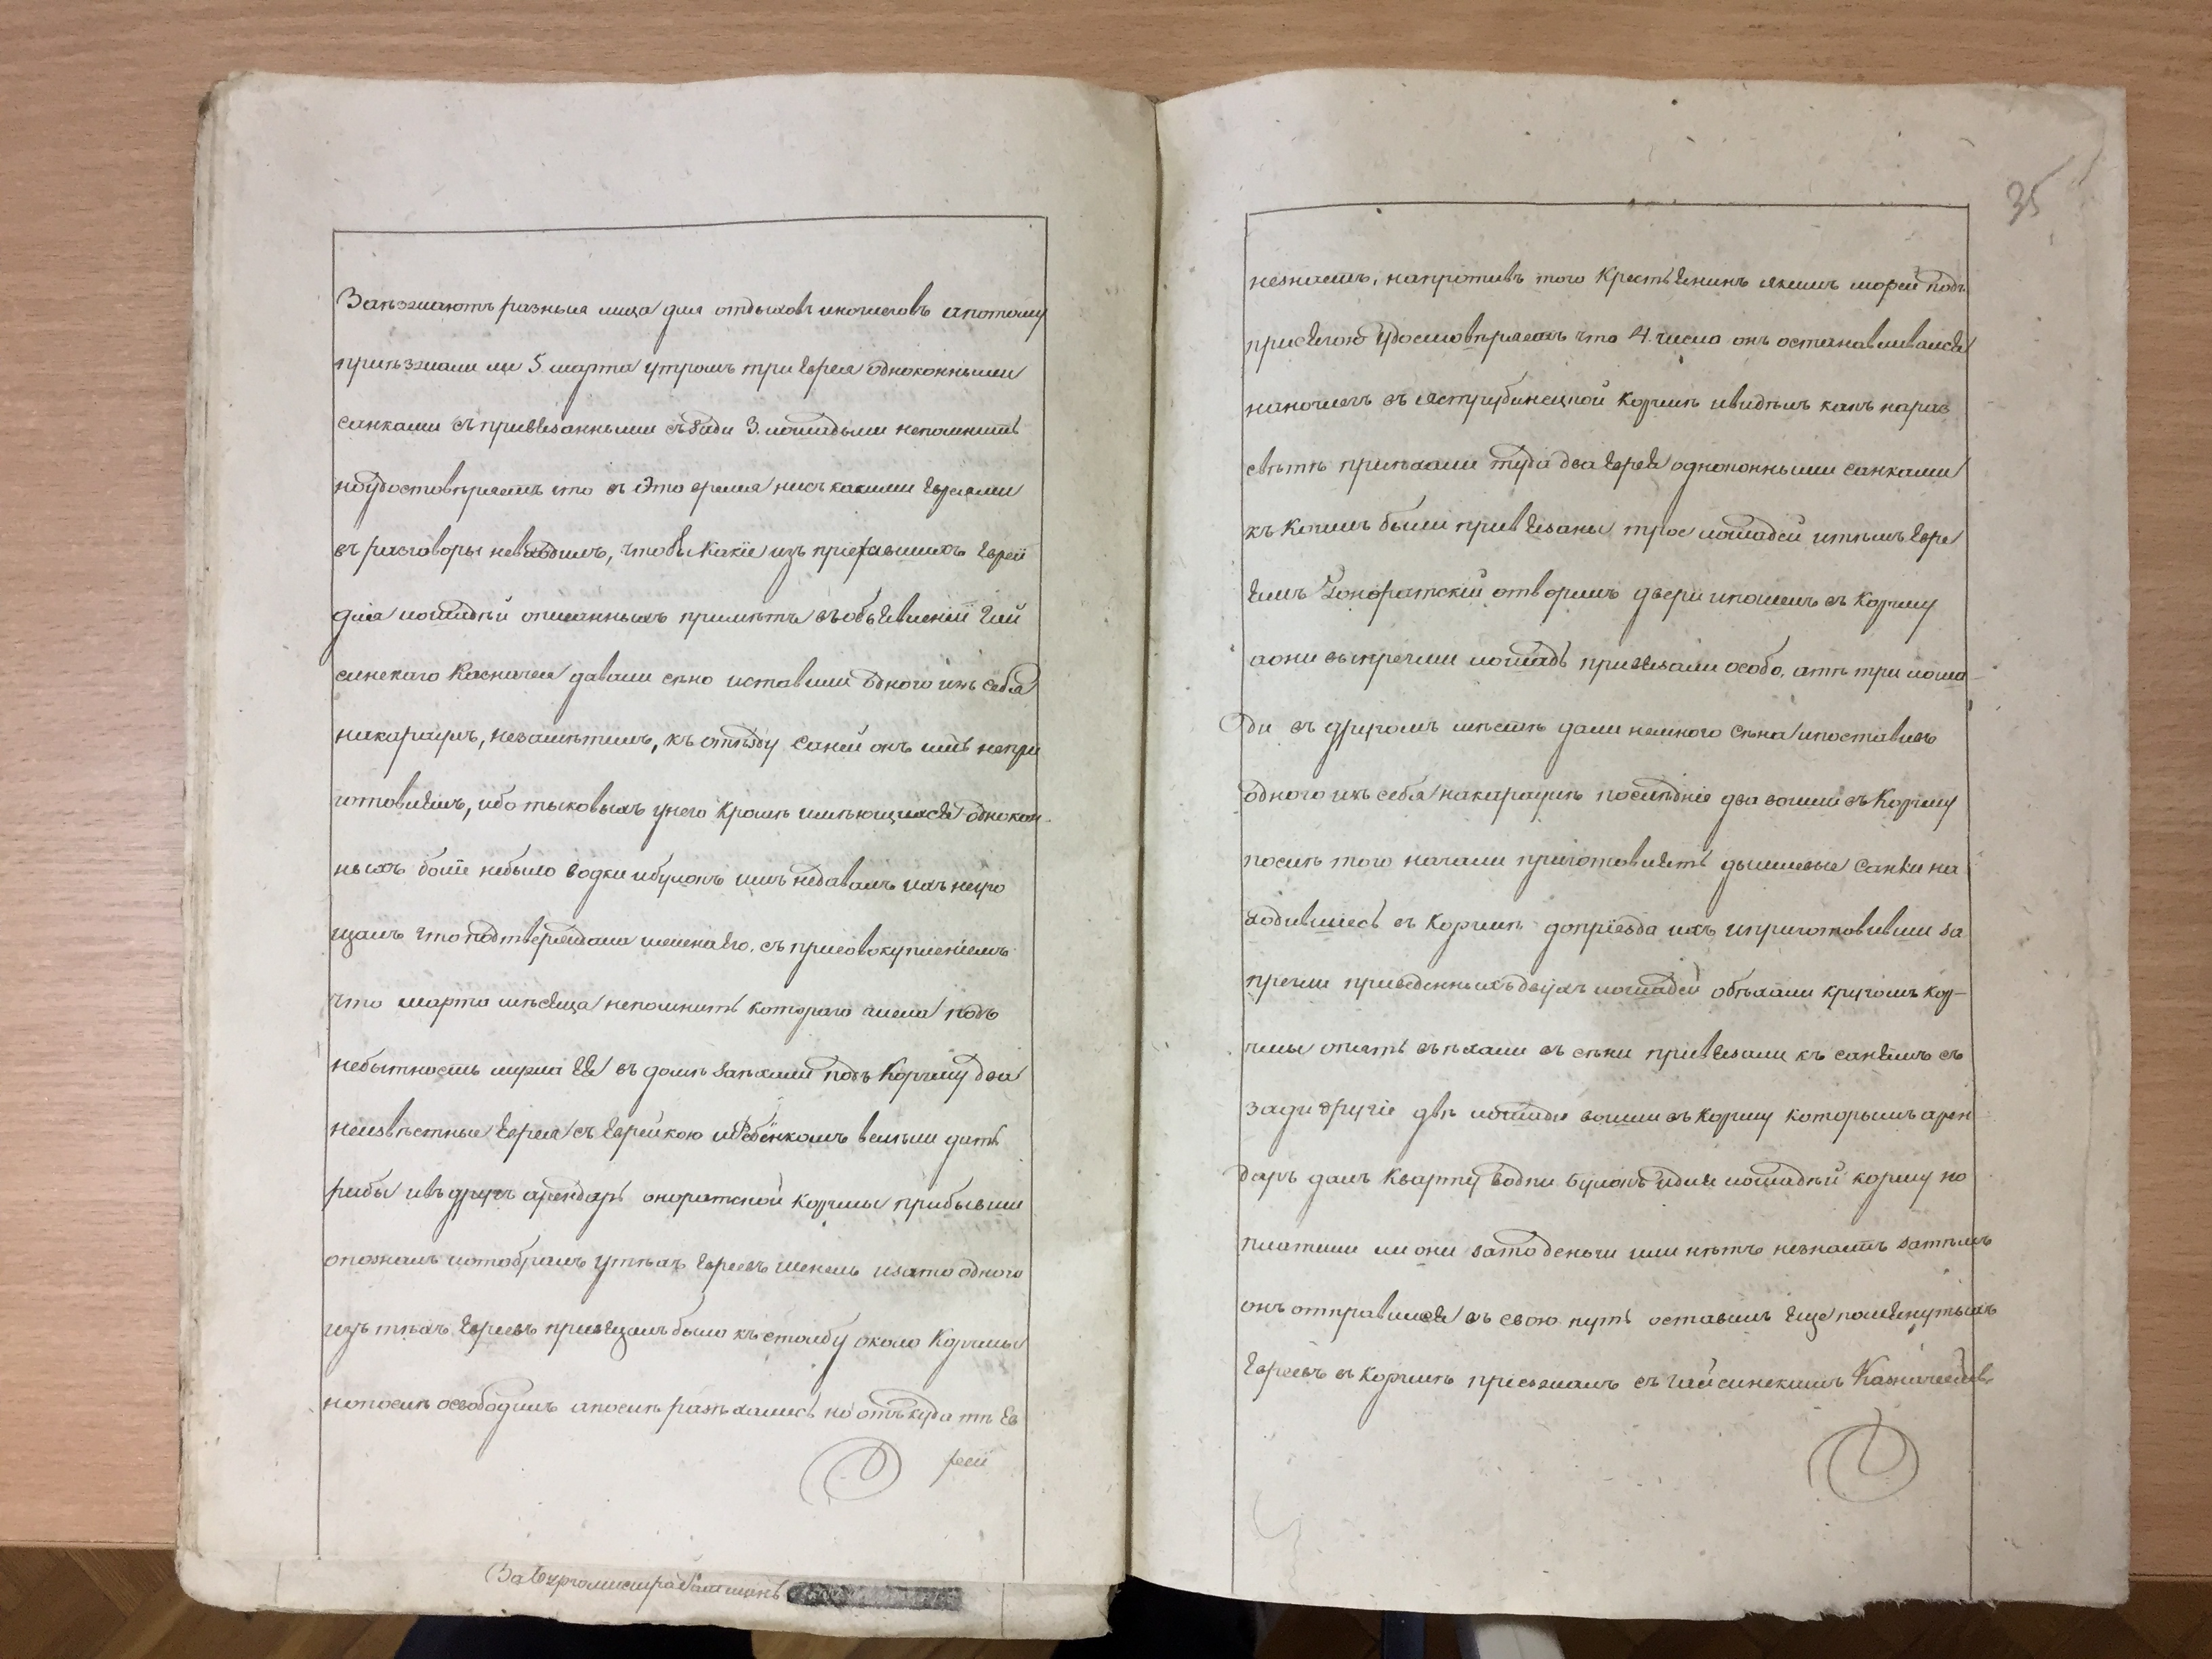 Заезжаютъ разныя лица для отдыховъ иночлеговъ апотому
приѣзжали ли 5 марта утромъ три Еврея одноконными
санками съ привезанными сзади 3. лошадьми непомнитъ
ноудостовѣряетъ что въ Это время нисъ какими Евреями
въ разговоры невходилъ, чтобы Какіе изъ Еврей
для лошадей описанныхъ примѣтъ въобъевленіи Гай
синскаго Казначея давали сѣно иставили одного изъ себя
накараулъ, незамѣтилъ, къ отъезду Саней онъ имъ непри
готовлелъ, ибо таковыхъ унего Кромѣ имѣющихся однокон
ныхъ болѣ небыло водки ибулокъ имъ недавалъ ихъ неуго
щалъ что подтверждала и жена Его, съ присовокупленіемъ
что марта мѣсяца непомнитъ котораго числа подъ
небытность мужа Ея въ домѣ заехали подъ Корчму два
неизвѣстные Еврея съ Еврейкою иРебёнкомъ велели дать
рыбы ивъдругъ арендарь оноратской корчмы прибывши
опозналъ иотобралъ утѣхъ Евреевъ изато одного
изъ тѣхъ Евреевъ привезалъ было къ столбу около Корчмы
нопослѣ освободилъ апослѣ разъѣхались но отъкуда тѣ Ев
реи
За Бургомистра
35
незнаетъ, напротивъ того Крестьенинъ Якимъ подъ
присегою Удостовѣряетъ что 4. число онъ останавливался
наночлегъ въ Яструбинецкой Корчмѣ ивидѣлъ какъ нараз
свѣтѣ приѣхали туда два Еврея одноконными санками
къ Коимъ были привезаны трое лошадей итѣмъ Евре
емъ Гоноратскій отворилъ двери ипошелъ въ Корчму
аони выпрегли лошадь привезали особо, атѣ три лоша-
ди въ другомъ мѣстѣ дали немного сѣна ипоставивъ
одного изъ себя накараулѣ послѣдніе два вошли въ Корчму
послѣ того начали приготовлять дышлевые Санки на
ходившіесь въ Корчмѣ доприезда ихъ иприготовивши за
прегли приведенныхъ двухъ лошадей объѣхали кругомъ кор-
чмы опять въѣхали въ сѣни привезали къ санемъ съ
зади другіе двѣ лошади вошли въ Корчму которымъ арен
дарь далъ Кварту водки булокъ идля лошадей корму но
платили ли они зато деньги или нѣтъ незнаетъ затѣмъ
онъ отправился въ свою путь оставилъ Еще помянутыхъ
Евреевъ въ Корчмѣ приезжалъ съ Гайсинскимъ Казначеемъ